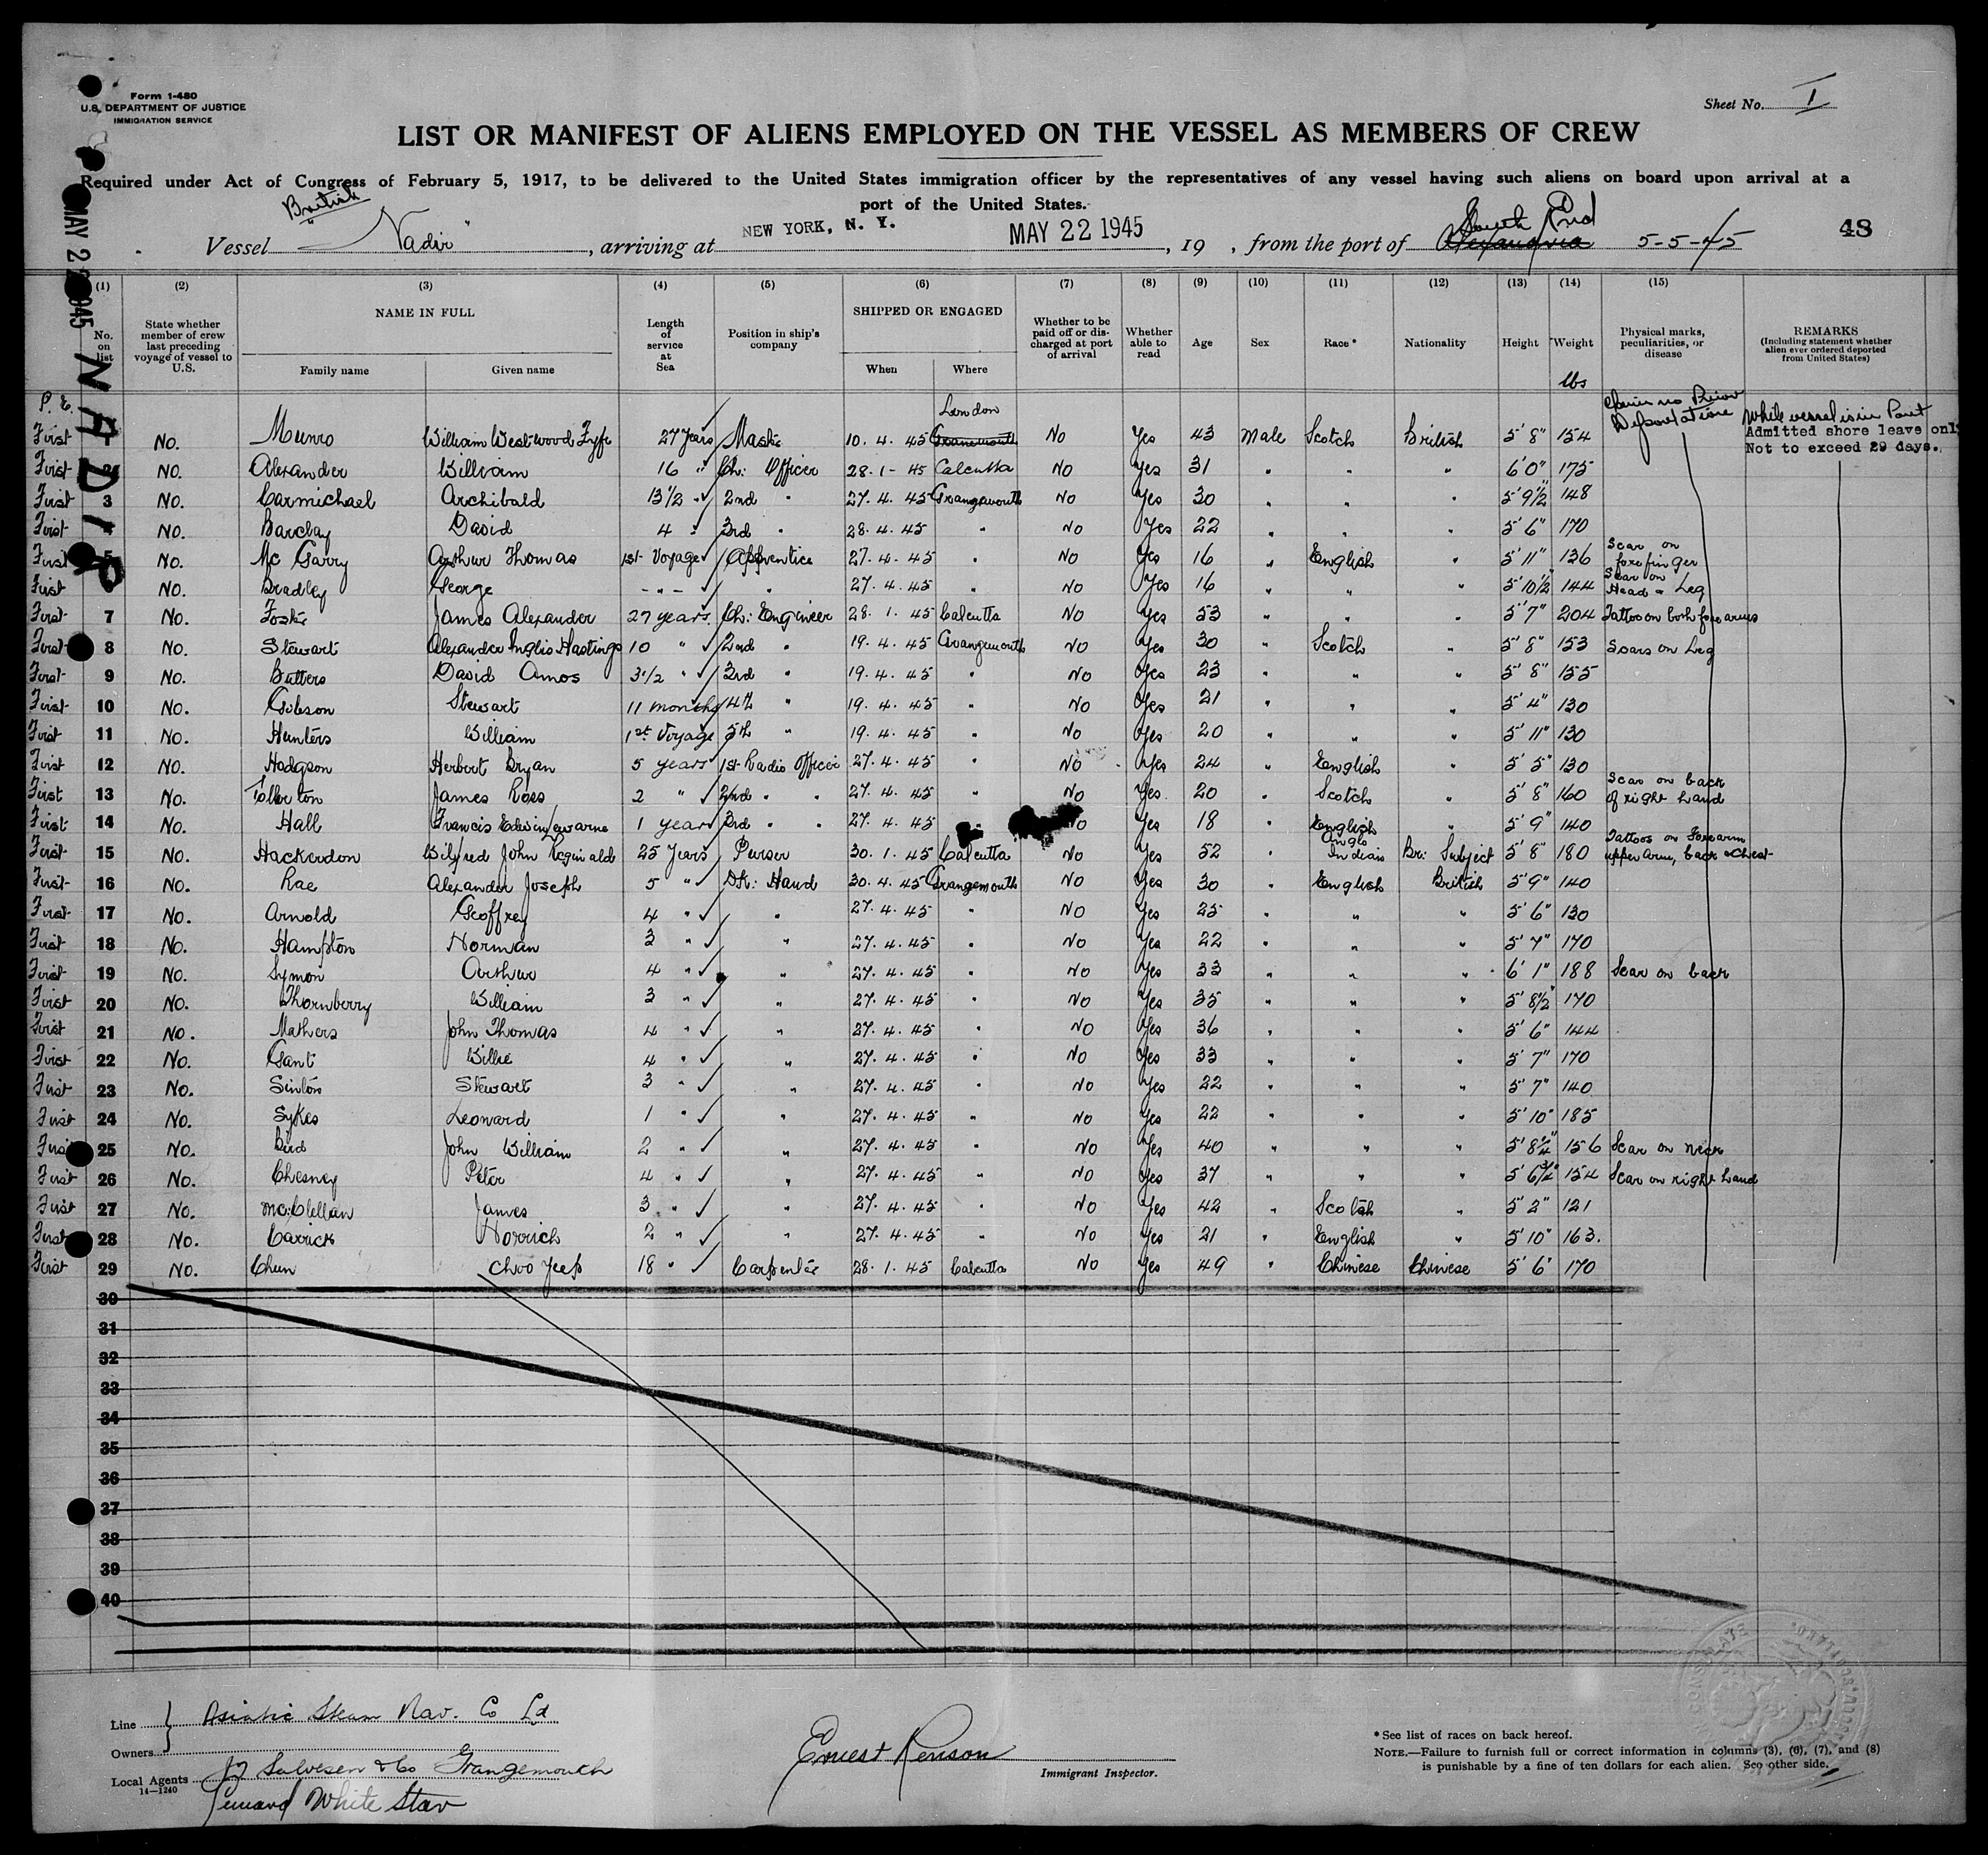 Form 1-480
U.S. DEPARTMENT OF JUSTICE
IMMIGRATION SERVICE
Sheet No. I
LIST OR MANIFEST OF ALIENS EMPLOYED ON THE VESSEL AS MEMBERS OF CREW
Required under Act of Congress of February 5, 1917, to be delivered to the United States immigration officer by the representatives of any vessel having such aliens on board upon arrival at a
port of the United States.
British
Vessel "Nadir", arriving at NEW YORK, N. Y. MAY 22 1945, 19 , from the port of South End 5-5-45
48
MAY 22 1945
NADIR
(1) (2) (3) (4) (5) (6) (7) (8) (9) (10) (11) (12) (13) (14) (15)
No. on list
State whether member of crew last preceding voyage of vessel to U.S.
NAME IN FULL
Family name
Given name
Length of service at Sea
Position in ship's company
SHIPPED OR ENGAGED
When
Where
Whether to be paid off or discharged at port of arrival
Whether able to read
Age
Sex
Race*
Nationality
Height
Weight
lbs
Physical marks, peculiarities, or disease
REMARKS
(Including statement whether alien ever ordered deported from United States)
P. E.
London
no Prior Deportation
While vessel is in Port
Admitted shore leave only
Not to exceed 29 days.
First No. Munro William Westwood Fyfe 27 Years 10. 4. 45 Grangemouth No Yes 43 Male Scotch British 5' 8" 154
First 2 No. Alexander William 16 " Ch: Officer 28. 1 - 45 Calcutta No Yes 31 " " " 6' 0" 175
First 3 No. Carmichael Archibald 13 1/2 " 2nd " 27. 4. 45 Grangemouth No Yes 30 " " " 5' 9 1/2" 148
First 4 No. Barclay David 4 " 3rd " 28. 4. 45 " No Yes 22 " " " 5' 6" 170
First 5 No. Mc Garry Arthur Thomas 1st Voyage Apprentice 27. 4. 45 " No Yes 16 " English " 5' 11" 136 Scar on forefinger
First No. Bradley George - " - " 27. 4. 45 " No Yes 16 " " " 5' 10 1/2" 144 Scar on Head & Leg
First 7 No. James Alexander 27 years Ch: Engineer 28. 1. 45 Calcutta No Yes 53 " " " 5' 7" 204 Tattoo on both forearms
First 8 No. Stewart Alexander Inglis Hastings 10 " 2nd " 19. 4. 45 Grangemouth No Yes 30 " Scotch " 5' 8" 153 Scars on Leg
First 9 No. Butters David Amos 3 1/2 " 3rd " 19. 4. 45 " No Yes 23 " " " 5' 8" 155
First 10 No. Gibson Stewart 11 months 4th " 19. 4. 45 " No Yes 21 " " " 5' 4" 130
First 11 No. Hunters William 1st Voyage 5th " 19. 4. 45 " No Yes 20 " " " 5' 11" 130
First 12 No. Hodgson Herbert Bryan 5 years 1st Radio Officer 27. 4. 45 " No Yes 24 " English " 5' 5" 130
First 13 No. James Ross 2 " 2nd " " 27. 4. 45 " No Yes 20 " Scotch " 5' 8" 160 Scar on back of right hand
First 14 No. Hall Francis Edwin 1 year 3rd " " 27. 4. 45 " No Yes 18 " English " 5' 9" 140
First 15 No. Wilfred John Reginald 25 Years Purser 30. 1. 45 Calcutta No Yes 52 " Anglo Indian Br: Subject 5' 8" 180 Tattoos on Forearm upper arm, back & Chest
First 16 No. Rae Alexander Joseph 5 " Dk: Hand 30. 4. 45 Grangemouth No Yes 30 " English British 5' 9" 140
First 17 No. Arnold Geoffrey 4 " " 27. 4. 45 " No Yes 25 " " " 5' 6" 130
First 18 No. Hampton Norman 3 " " 27. 4. 45 " No Yes 22 " " " 5' 7" 170
First 19 No. Symon Arthur 4 " " 27. 4. 45 " No Yes 33 " " " 6' 1" 188 Scar on back
First 20 No. Thornberry William 3 " " 27. 4. 45 " No Yes 35 " " " 5' 8 1/2" 170
First 21 No. Mathers John Thomas 4 " " 27. 4. 45 " No Yes 36 " " " 5' 6" 144
First 22 No. Gant Willie 4 " " 27. 4. 45 " No Yes 33 " " " 5' 7" 170
First 23 No. Sinton Stewart 3 " " 27. 4. 45 " No Yes 22 " " " 5' 7" 140
First 24 No. Sykes Leonard 1 " " 27. 4. 45 " No Yes 22 " " " 5' 10" 185
First 25 No. Bird John William 2 " " 27. 4. 45 " No Yes 40 " " " 156 Scar on neck
First 26 No. Chesney Peter 4 " " 27. 4. 45 " No Yes 37 " " " 5' 6 3/4" 154 Scar on right hand
First 27 No. McClellan James 3 " " 27. 4. 45 " No Yes 42 " Scotch " 5' 2" 121
First 28 No. Carrick 2 " " 27. 4. 45 " No Yes 21 " English " 5' 10" 163.
First 29 No. Chun Choo Yeep 18 " Carpenter 28. 1. 45 Calcutta No Yes 49 " Chinese Chinese 5' 6" 170
30
31
32
33
34
35
36
37
38
39
40
Line Asiatic Steam Nav. Co Ld
Owners
Local Agents Salvesen & Co Grangemouth
14—1240
Cunard White Star
Ernest Renson
Immigrant Inspector.
*See list of races on back hereof.
NOTE.—Failure to furnish full or correct information in columns (3), (6), (7), and (8)
is punishable by a fine of ten dollars for each alien. See other side.